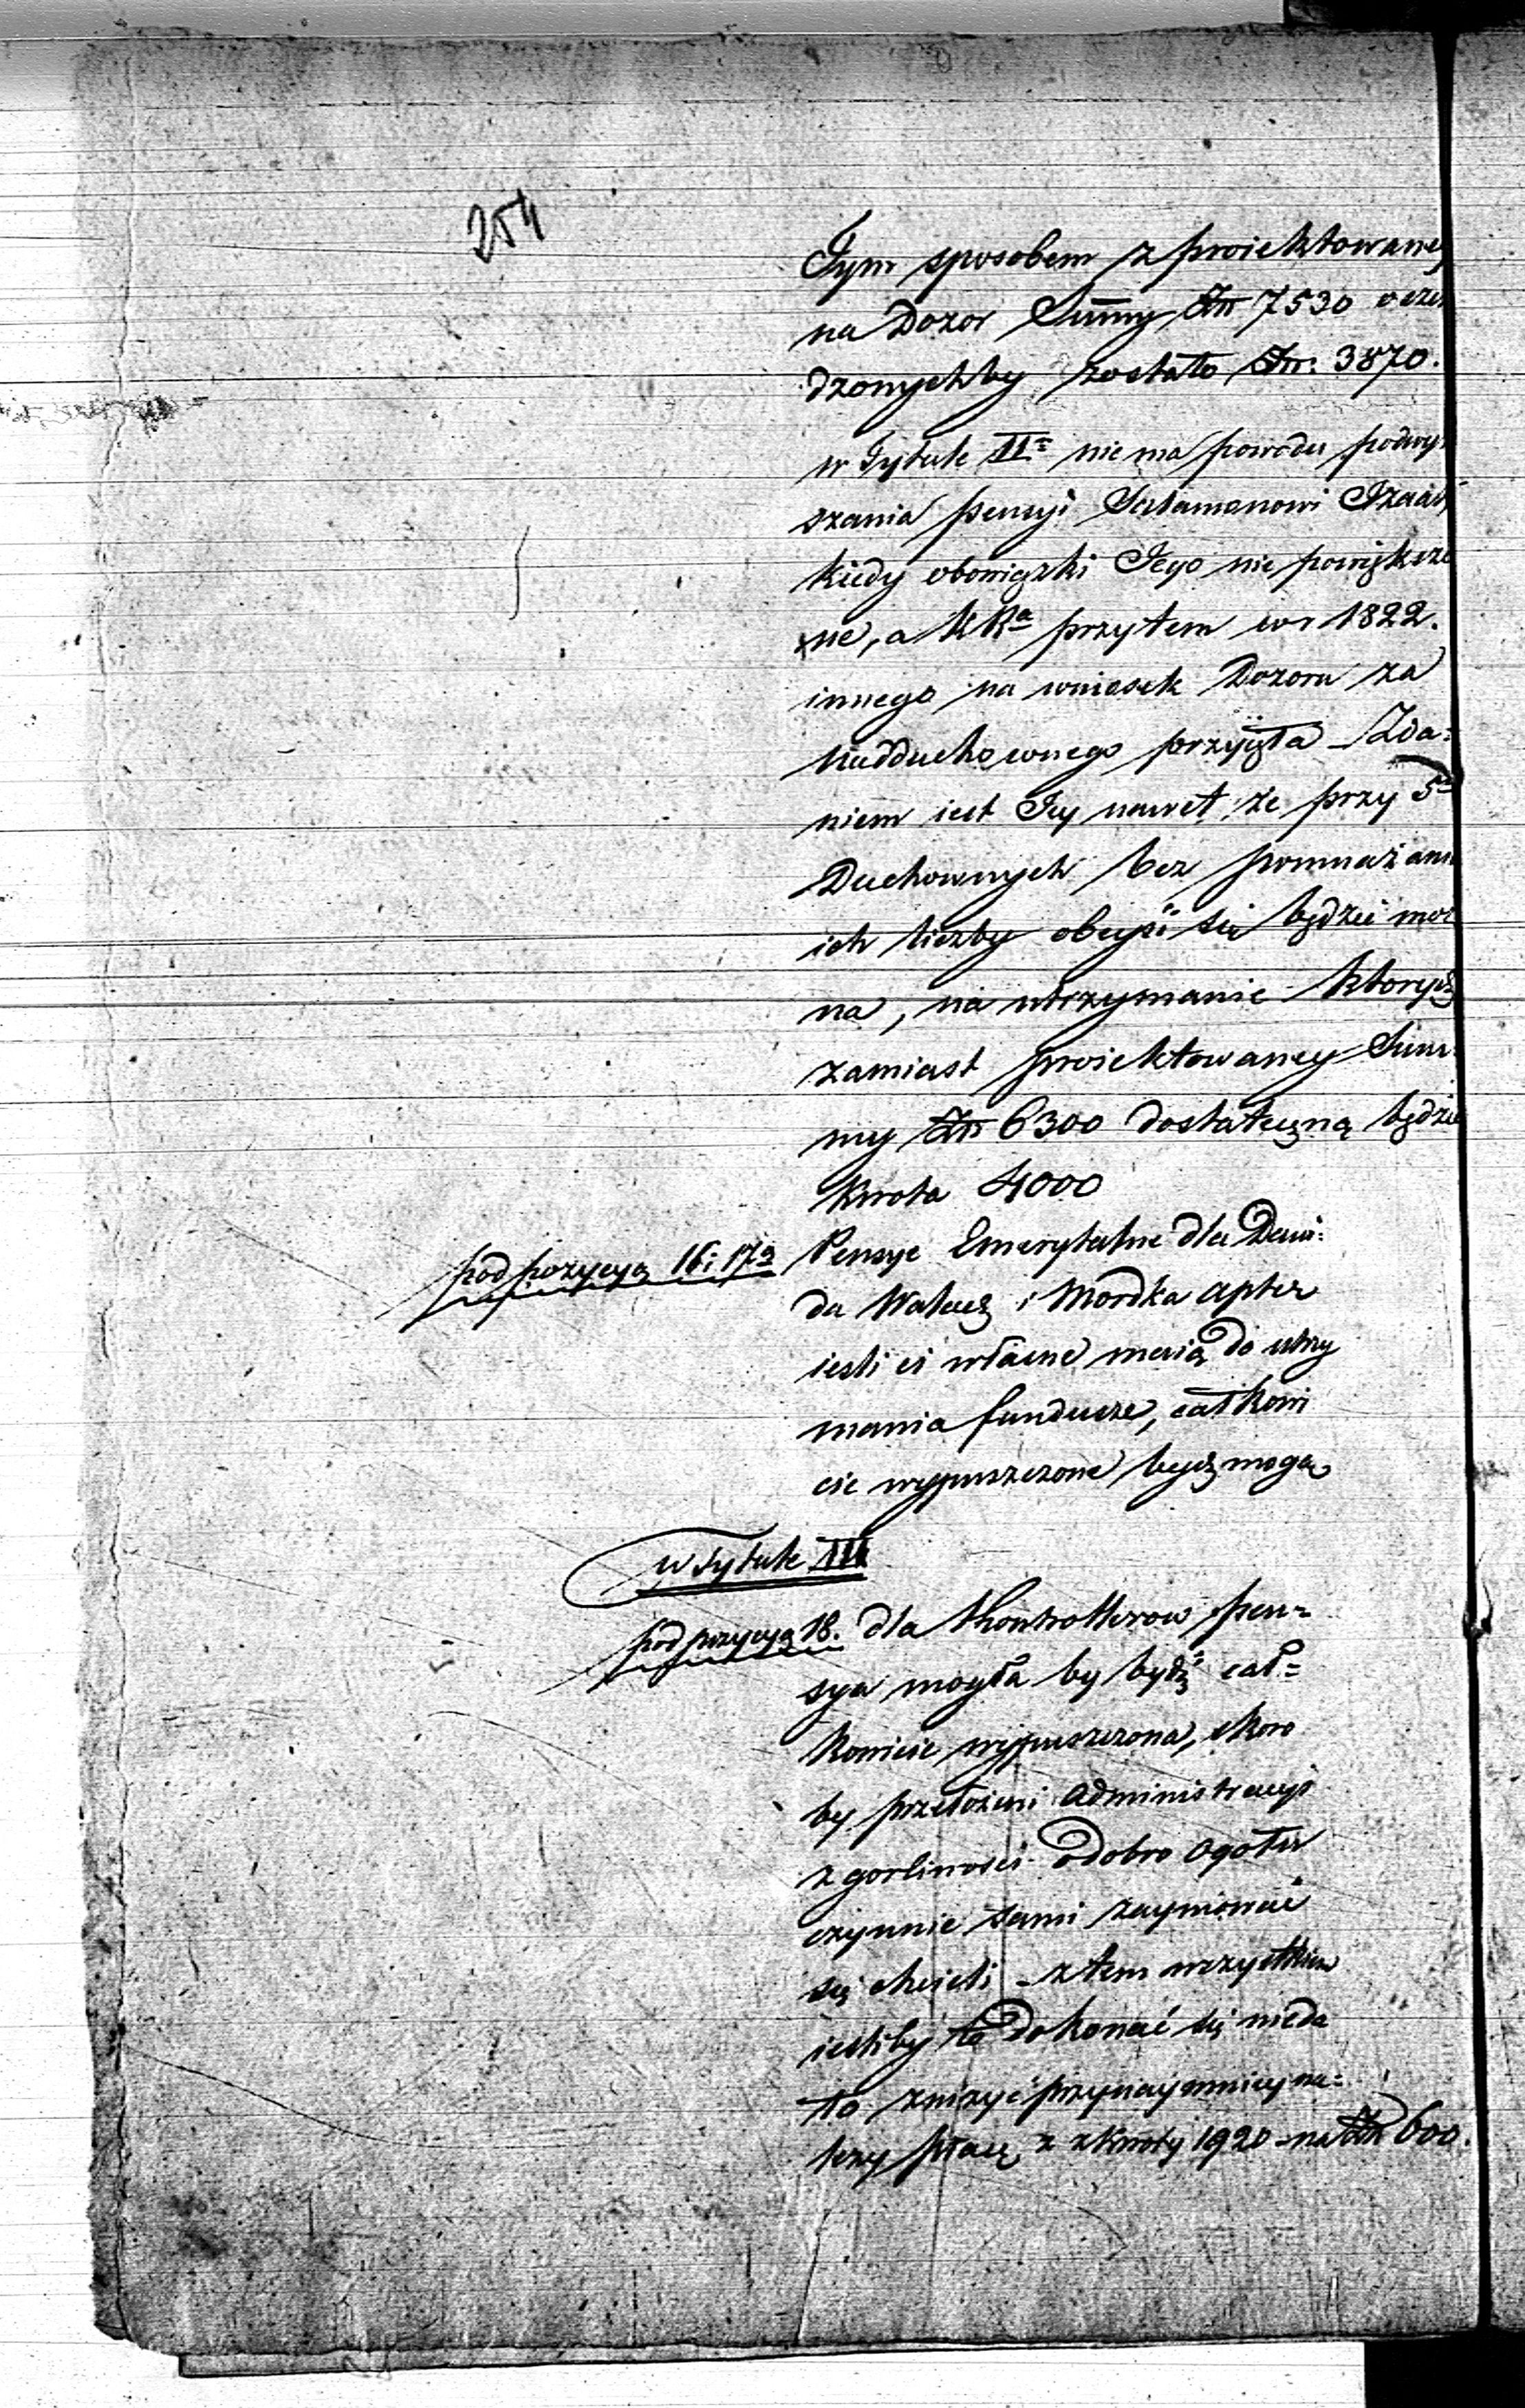 254
Tym sposobem z proiektowaney
na Dozor Summy Złł 7530 oszczę
dzonychby zostało Złł: 3870.
w Tytule II= nie ma powodu podwyż
szania pensyi Salamonowi Izaak
kiedy obowiązki Jego nie powiększo
ne, a KRa przytem w r 1822.
innego na wniosek Dozoru za
nadduchownego przyięła Zda=
niem iest Jey nawet, że przy 5=
Duchownych bez pomnażani
ich liczby obeyść się będzie moż
na, na utrzymanie których
zamiast proiektowaney Sum=
my Złł 6300 dostateczną będzie
kwota 4000
pod pozycyą 16 i 17ą Pensye Emerytalne dla Dawi=
da i Mordka Apter
iesli ci własne maią do utrzy
mania fundusze, całkowi
cie wypuszczone bydź mogą
w tytule III
pod pozycyą 18. dla Kontrollerow pen=
sya mogła by bydź cał=
kowicie wypuszczona, skoro
by przełożeni Administracyi
z gorliwości o dobro ogołu
czynnie sami zaymować
się chcieli – z tem wszystkiem
iesliby to dokonać się nieda
to zniżyć przynaymniey na=
leży płacę z kwoty 1920 na Złł 600.